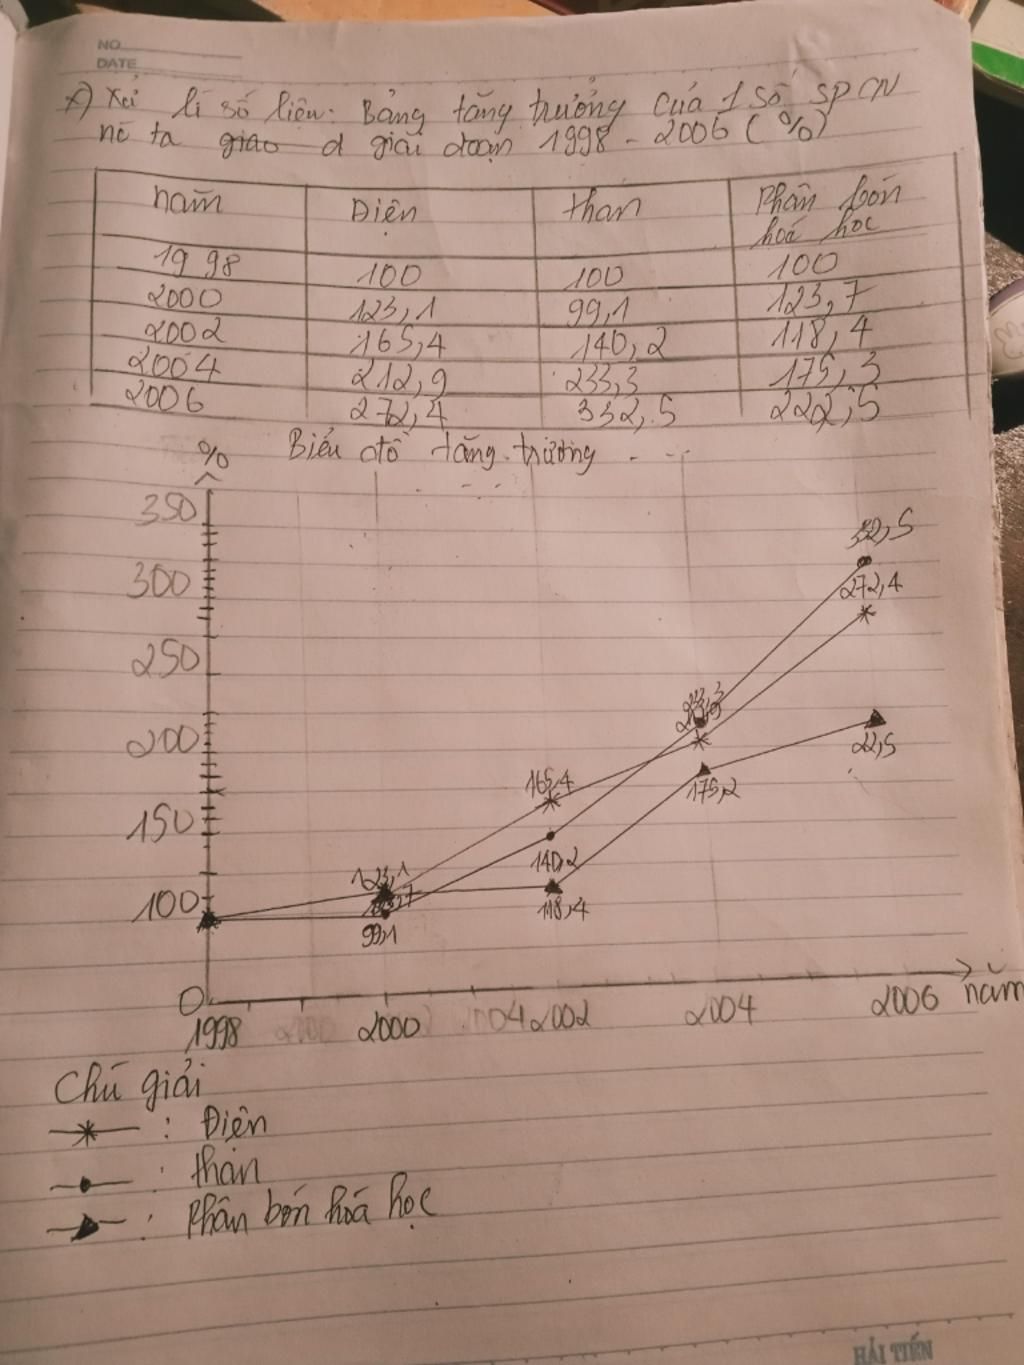 NO
DATE
*) Xử lí số liệu: Bảng tăng trưởng của 1 số SPCN
nc ta giao d giai đoạn 1998 - 2006 (%)
năm Điện than Phân bón
hoá học
1998 100 100 100
2000 123,1 99,1 123,7
2002 165,4 140,2 118,4
2004 212,9 233,3 175,3
2006 272,4 332,5 222,5
Biểu đồ tăng trưởng ...
%
350
332,5
300
272,4
250
233,3
200
22,5
175,2
165,4
150
140,2
123,1
118,4
100
99,1
0
1998 2000 2002 2004 2006 năm
Chú giải
: Điện
: than
: Phân bón hoá học
HẢI TIẾN